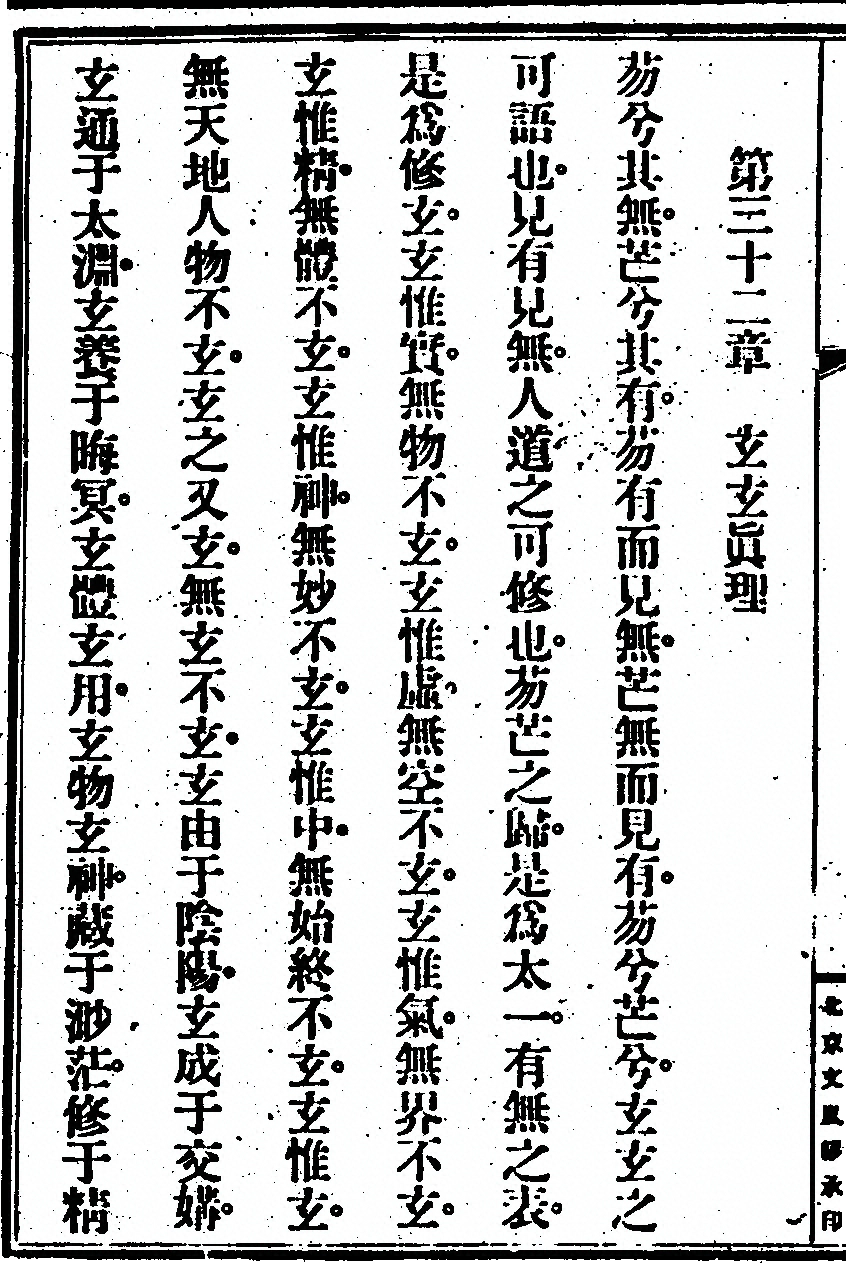 北京文嵐簃承印
第三十二章　玄玄眞理
芴兮其無。芒兮其有。芴有而見無。芒無而見有。芴兮芒兮。玄玄之
可語也。見有見無。人道之可修也。芴芒之歸。是爲太一。有無之表。
是爲修玄。玄惟實。無物不玄。玄惟虛。無空不玄。玄惟氣。無界不玄。
玄惟精。無體不玄。玄惟神。無妙不玄。玄惟中。無始終不玄。玄惟玄。
無天地人物不玄。玄之又玄。無玄不玄。玄由于陰陽。玄成于交媾。
玄通于太淵。玄養于晦冥。玄體玄用。玄物玄神。藏于渺茫。修于精